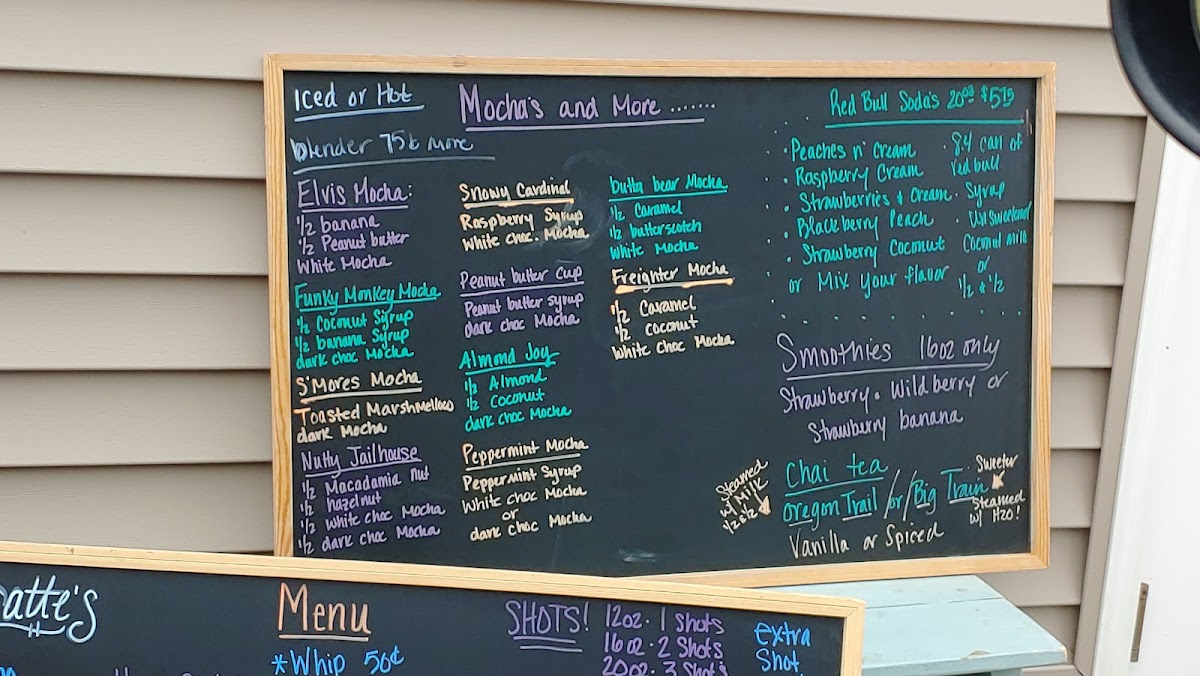 Iced or Hot
blender 75¢ more
Mocha's and More .......
Elvis Mocha:
1/2 banana
1/2 Peanut butter
White Mocha
Funky Monkey Mocha
1/2 Coconut Syrup
1/2 banana Syrup
dark choc Mocha
S'Mores Mocha
Toasted Marshmelloo
dark Mocha
Nutty Jailhouse
1/2 Macadamia nut
1/2 hazelnut
1/2 white choc Mocha
1/2 dark choc Mocha
Snowy Cardinal
Raspberry Syrup
White choc. Mocha
Peanut butter Cup
Peanut butter syrup
dark choc Mocha
Almond Joy
1/2 Almond
1/2 Coconut
dark choc Mocha
Peppermint Mocha
Peppermint Syrup
White choc Mocha
or
dark choc Mocha
butta bear Mocha
1/2 Caramel
1/2 butterscotch
White Mocha
Freighter Mocha
1/2 Caramel
1/2 coconut
White choc Mocha
Red Bull Soda's 20oz $5.75
· Peaches n' Cream
· Raspberry Cream
· Strawberries & Cream
· Blackberry Peach
· Strawberry Coconut
or Mix your flavor
· 8.4 can of
red bull
· Syrup
· Unsweetened
Coconut Milk
or
1/2 & 1/2
Smoothies 16oz only
Strawberry · Wildberry or
Strawberry banana
Chai tea
Oregon Trail /or/ Big Train
Vanilla or Spiced
Steamed
w/ Milk
1/2 & 1/2
Sweeter
Steamed
w/ H2O!
atte's
Menu
*Whip 50¢
SHOTS!
12oz · 1 shots
16oz · 2 Shots
20oz · 3 Shots
extra
Shot